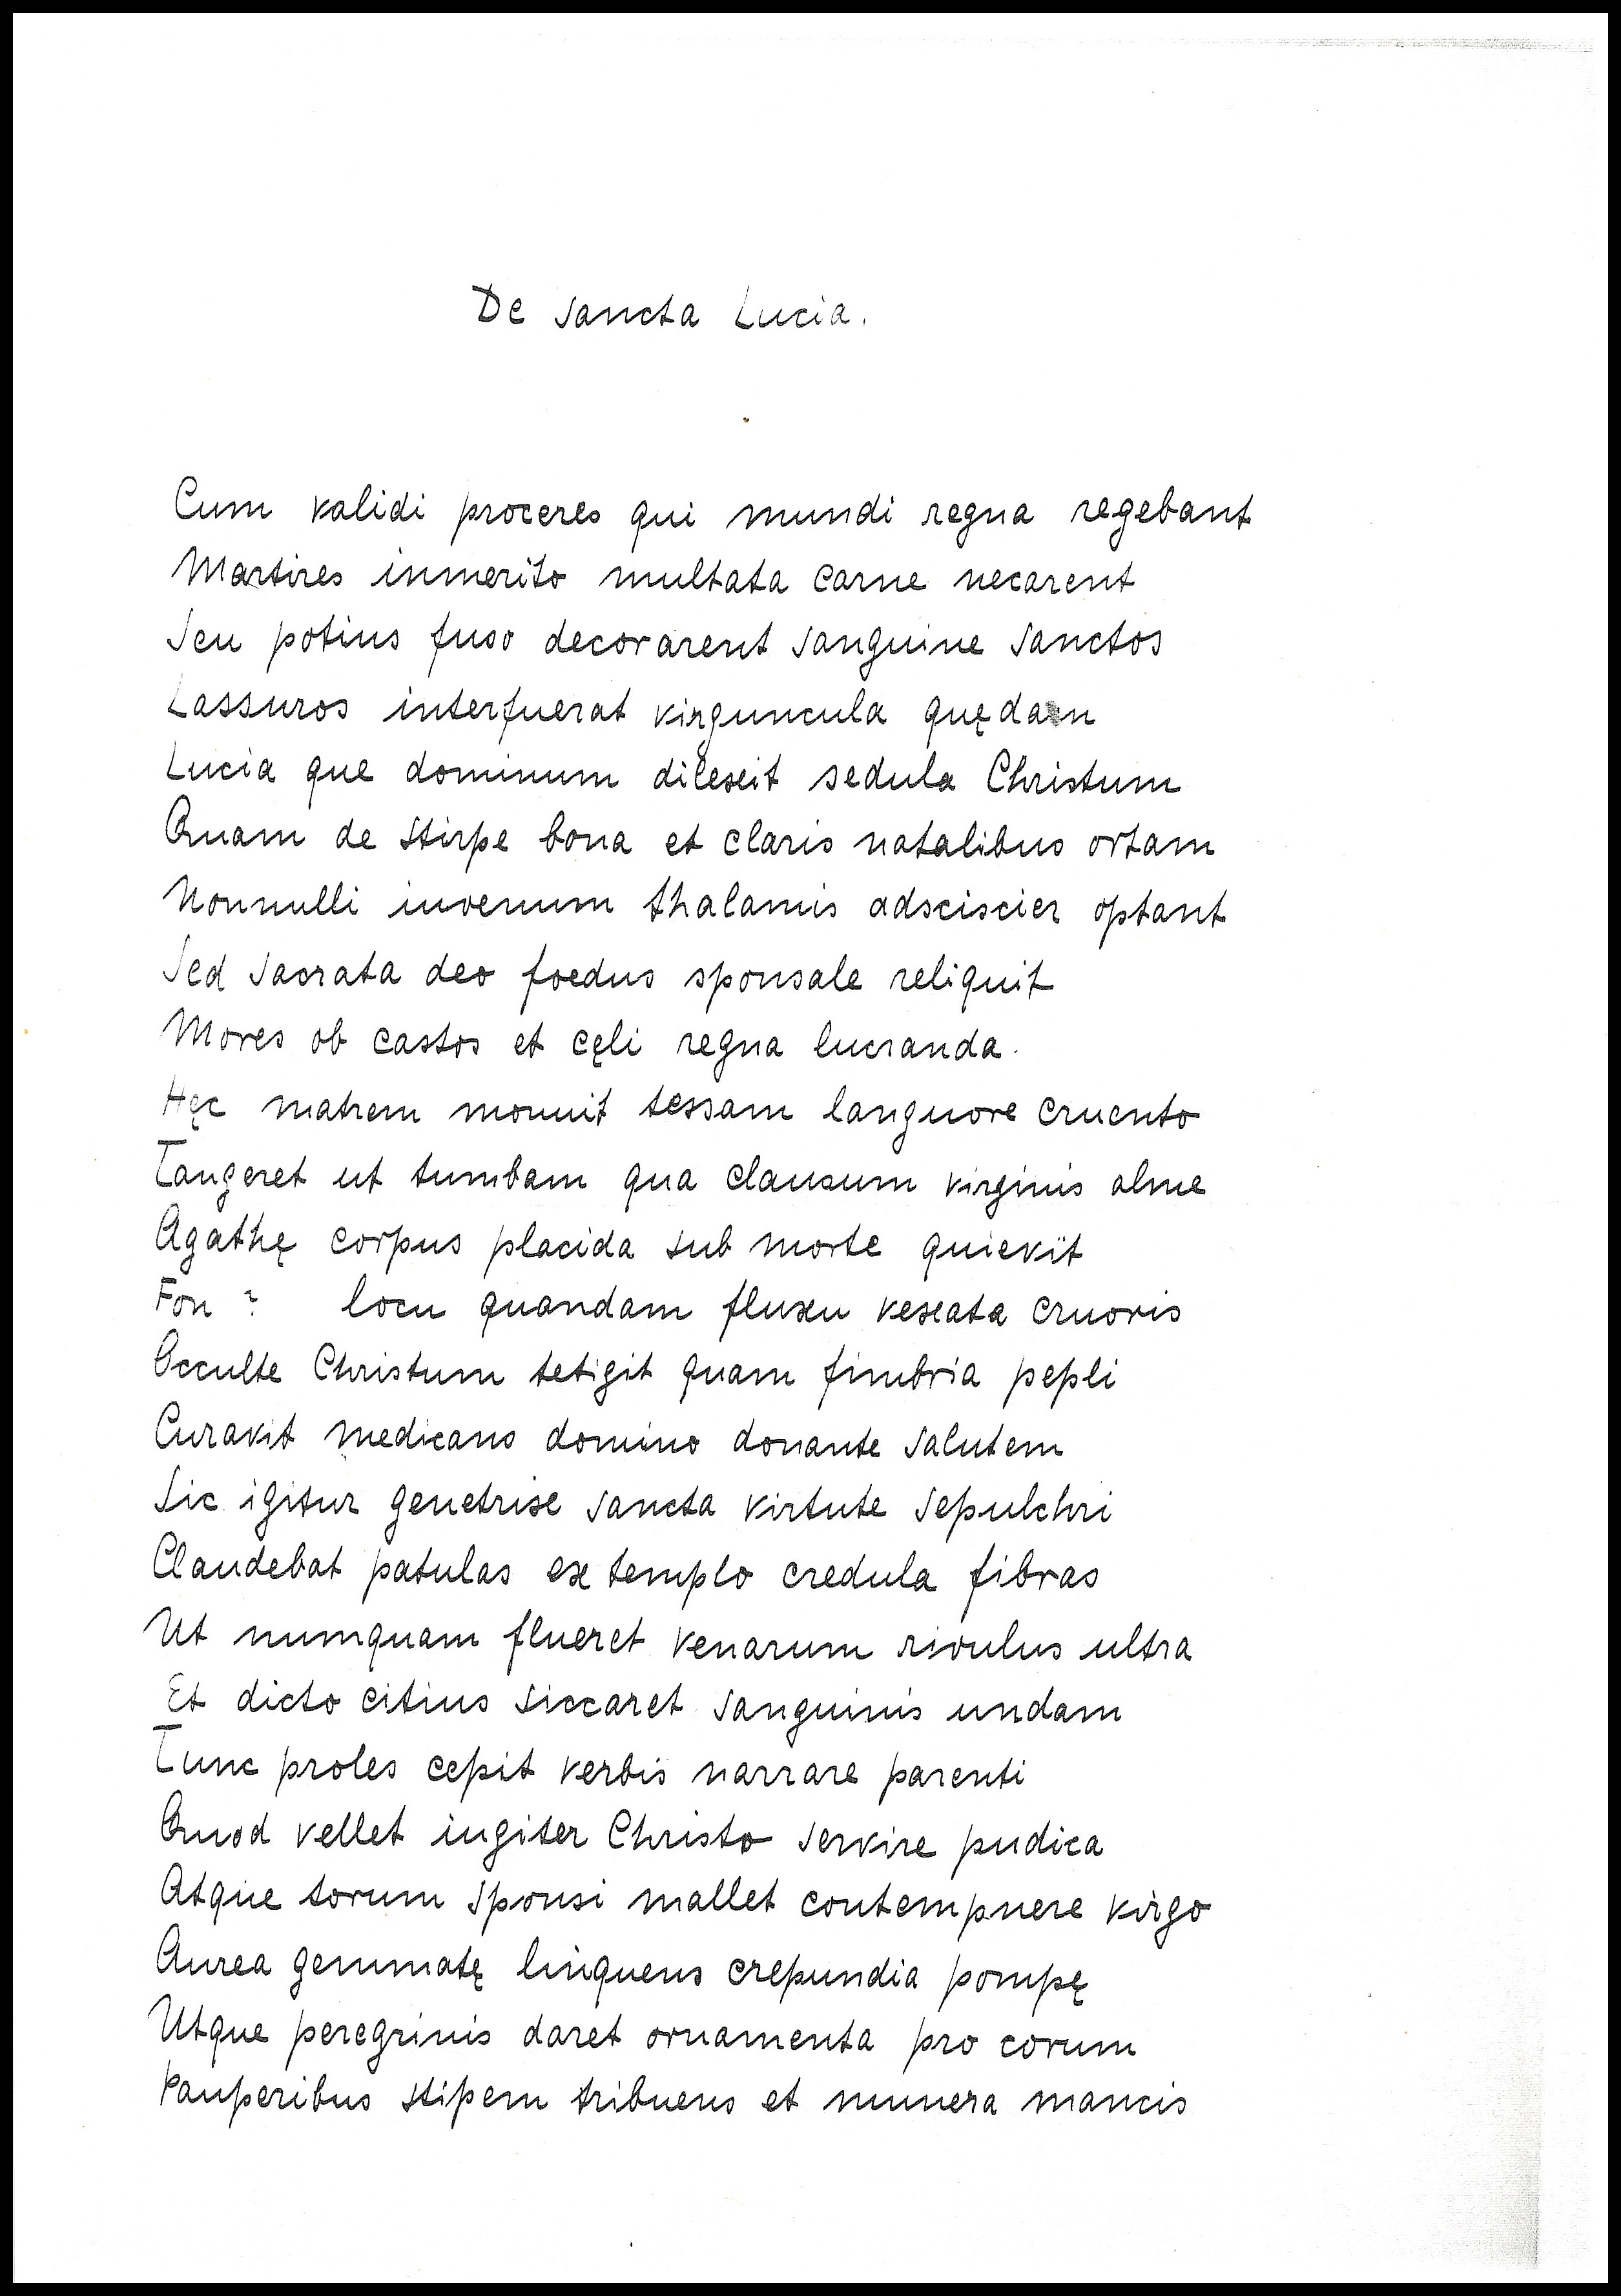 De sancta Lucia.
Cum validi proceres qui mundi regna regebant
Martires inmerito multata carne necarent
Seu potius fuso decorarent sanguine sanctos
Lassuros interfuerat virguncula quędam
Lucia que dominum dilexit sedula Christum
Quam de stirpe bona et claris natalibus ortam
Nonnulli iuvenum thalamis adsciscier optant
Sed sacrata deo foedus sponsale reliquit
Mores ob castos et cęli regna lucranda.
Hęc matrem monuit tessam languore cruento
Tangeret ut tumbam qua clausum virginis alme
Agathę corpus placida sub morte quievit
Fon ? locu quandam fluxu vexata cruoris
Occulte Christum tetigit quam fimbria pepli
Curavit medicans domino donante salutem
Sic igitur genetrix sancta virtute sepulchri
Claudebat patulas ex templo credula fibras
Ut numquam flueret venarum rivulus ultra
Et dicto citius siccaret sanguinis undam
Tunc proles cepit verbis narrare parenti
Quod vellet iugiter Christo servire pudica
Atque torum sponsi mallet contempnere virgo
Aurea gemmatę linquens crepundia pompę
Utque peregrinis daret ornamenta pro eorum
Pauperibus stipem tribuens et munera mancis